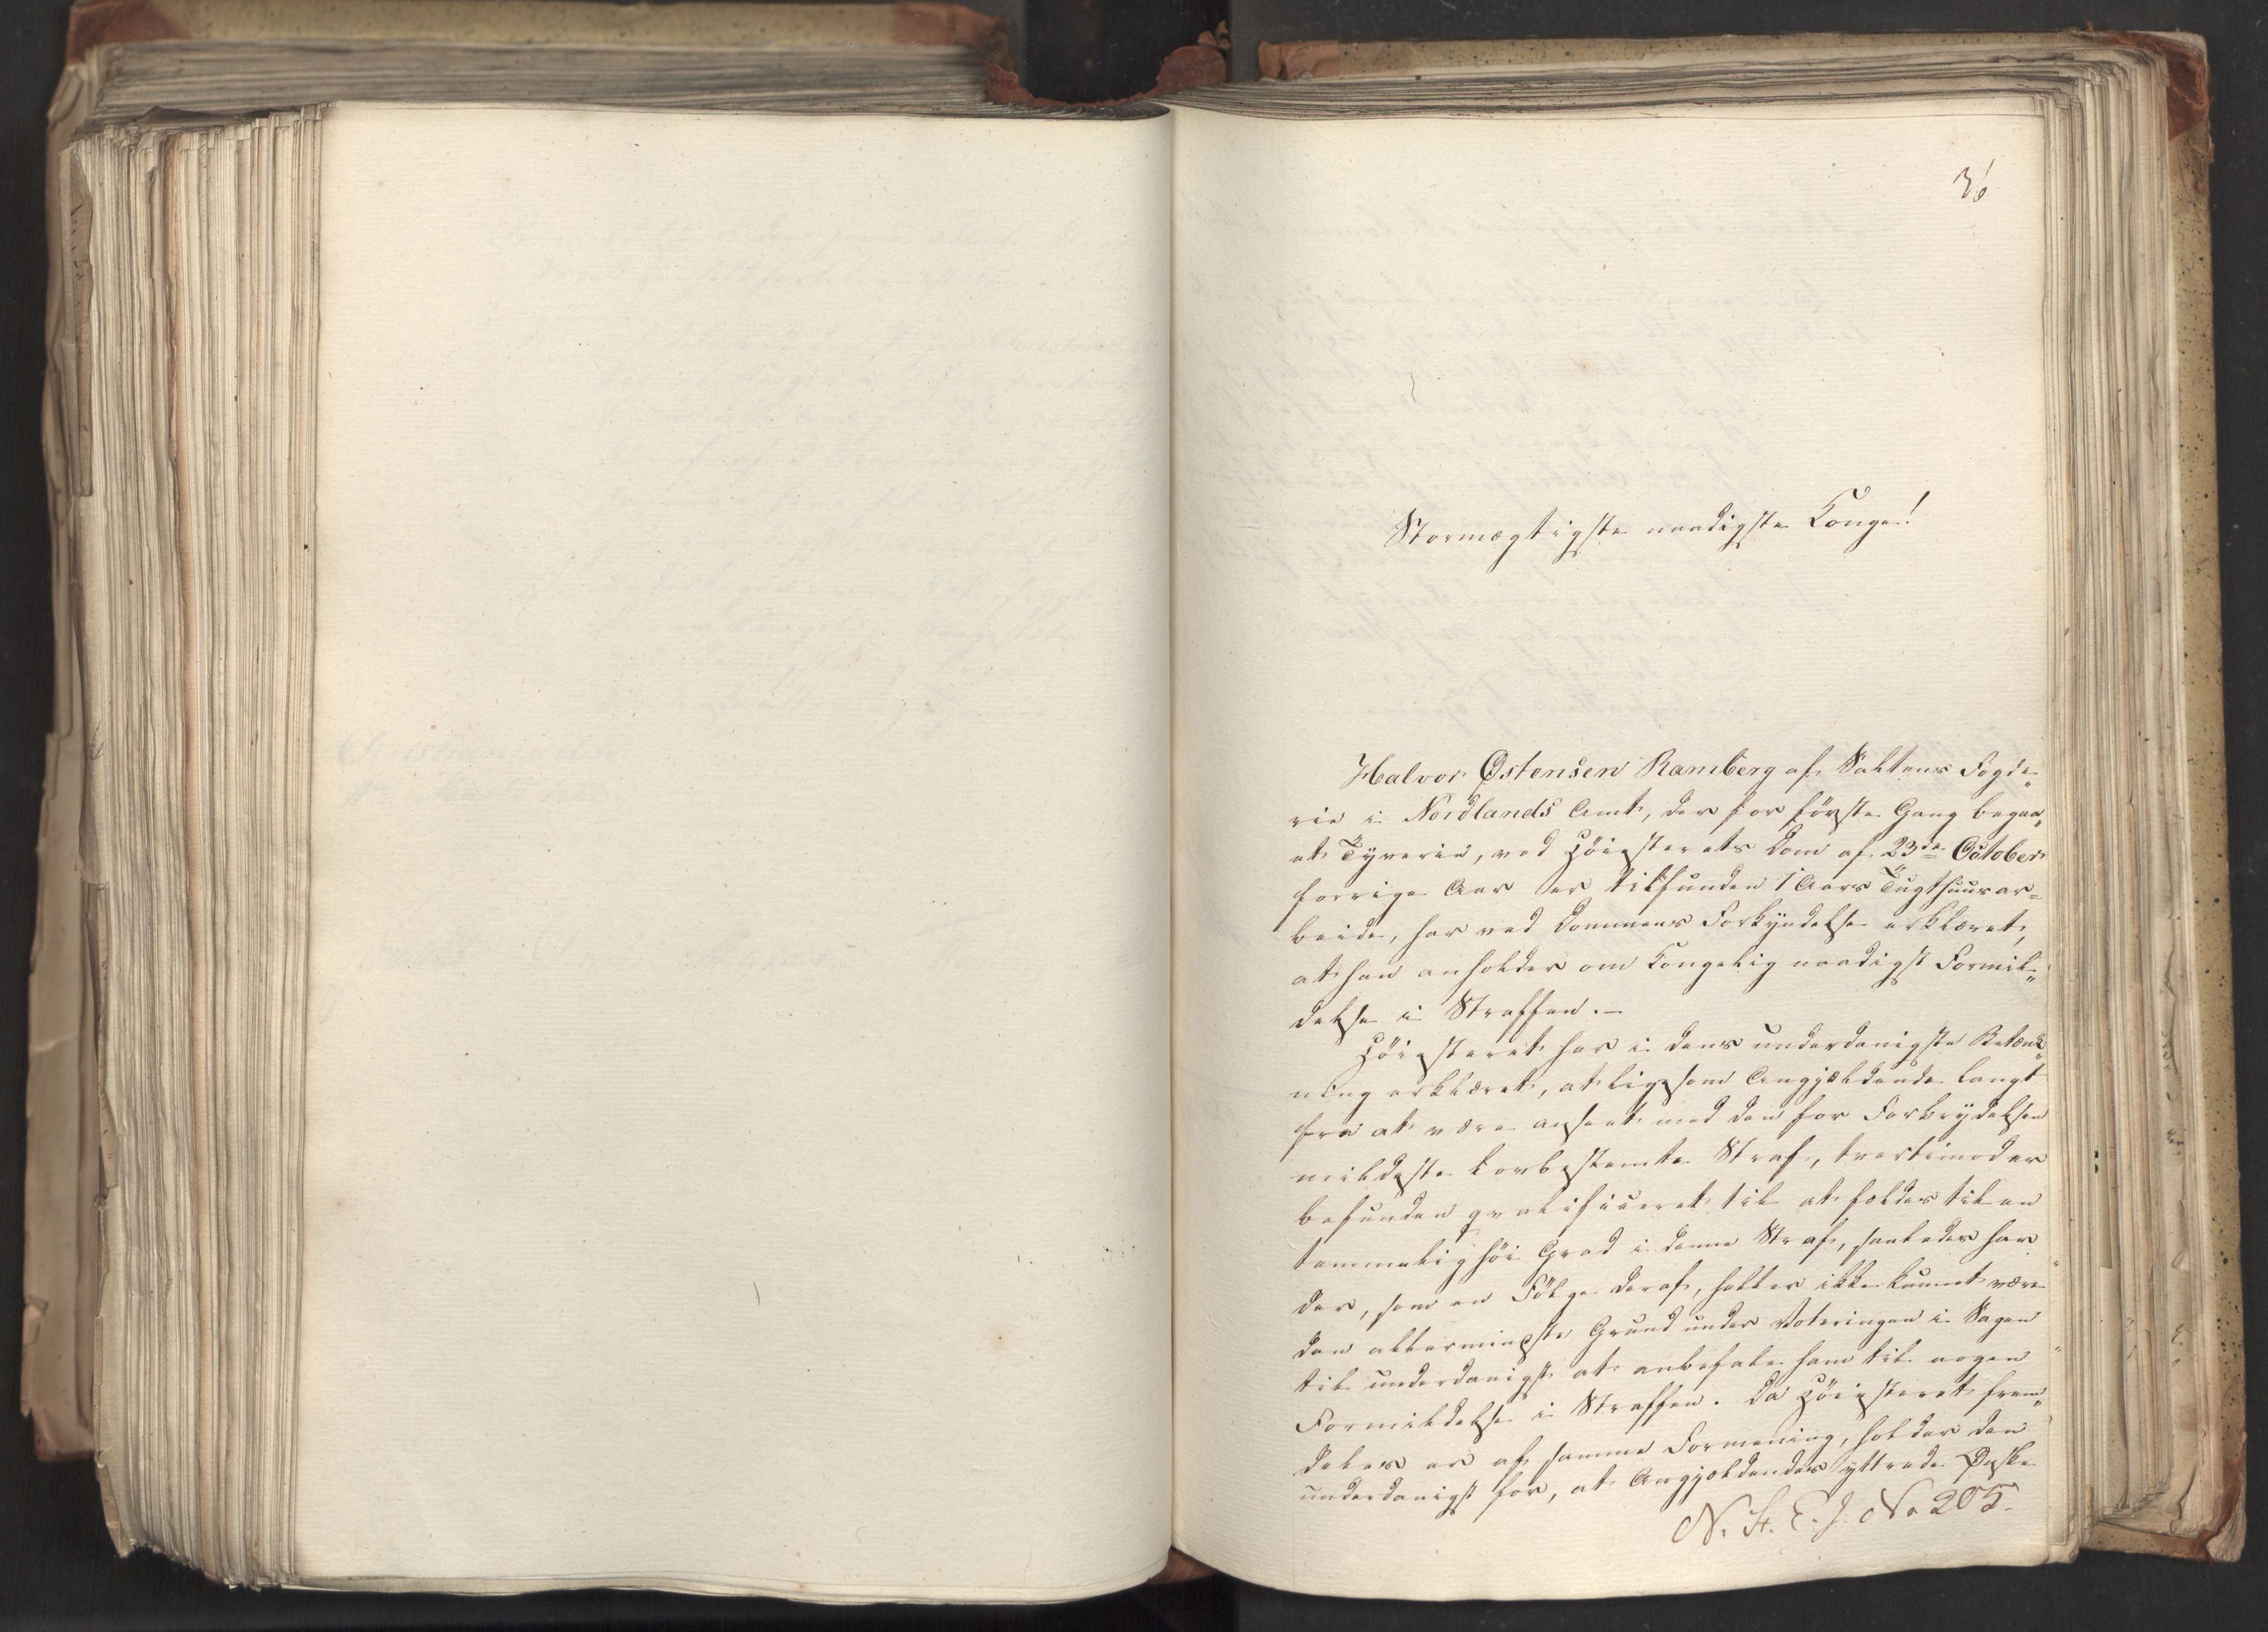 36
Stormægtigste naadigste Konge!
Halvor Østensen Ramberg af Saltens Fogde„
rie i Nordlands Amt, der for første Gang begaa„
et Tyverie, ved Høiesterets Dom af 23de October
forrige Aar er tilfunden 1 Aars Tugthuusar=
beide, har ved Dommens Forkyndelse erklæret,
at han anholder om Kongelig naadigst Formil„
delse i Straffen.–
Høiesteret har i dens underdanigste Betænk„
ning erklæret, at ligesom Angjældende langt
fra at være anseet med den for Forbrydelsen
mildeste lovbestemte Straf, tvertimod er
befunden qvalificeret til at fældes til en
temmelig høi Grad i denne Straf, saaledes har
der, som en Følge deraf, heller ikke kunnet være
den allermindste Grund under Voteringen i Sagen
til underdanigst at anbefale ham til nogen
Formildelse i Straffen. Da Høiesteret frem„
deles er af samme Formening, holder den
underdanigst for, at Angjældendes yttrede Ønske
N. St. E. J. No 205.